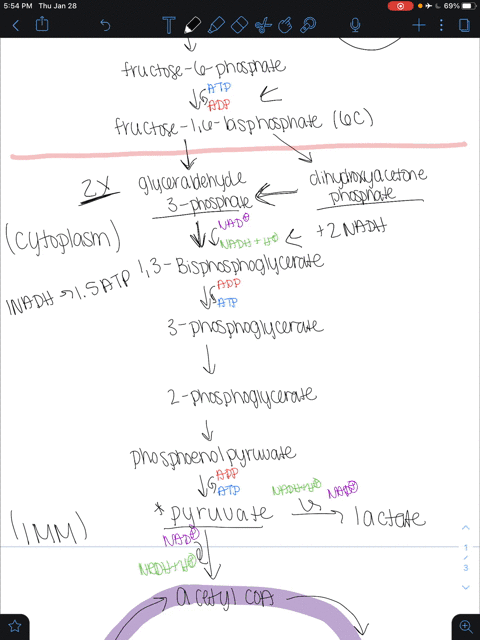 5:54 PM Thu Jan 28
69%
fructose-6-phosphate
ATP
ADP
fructose-1,6-bisphosphate (6C)
2X glyceraldehyde
3-phosphate
dihydroxyacetone
phosphate
NAD⊕
(cytoplasm)
NADH+H⊕
+2NADH
1NADH → 1.5ATP
1,3-Bisphosphoglycerate
ADP
ATP
3-phosphoglycerate
2-phosphoglycerate
phosphoenolpyruvate
ADP
ATP
NADH+H⊕
NAD⊕
(IMM)
* pyruvate
lactate
NAD⊕
NADH+H⊕
acetyl COA
1
3